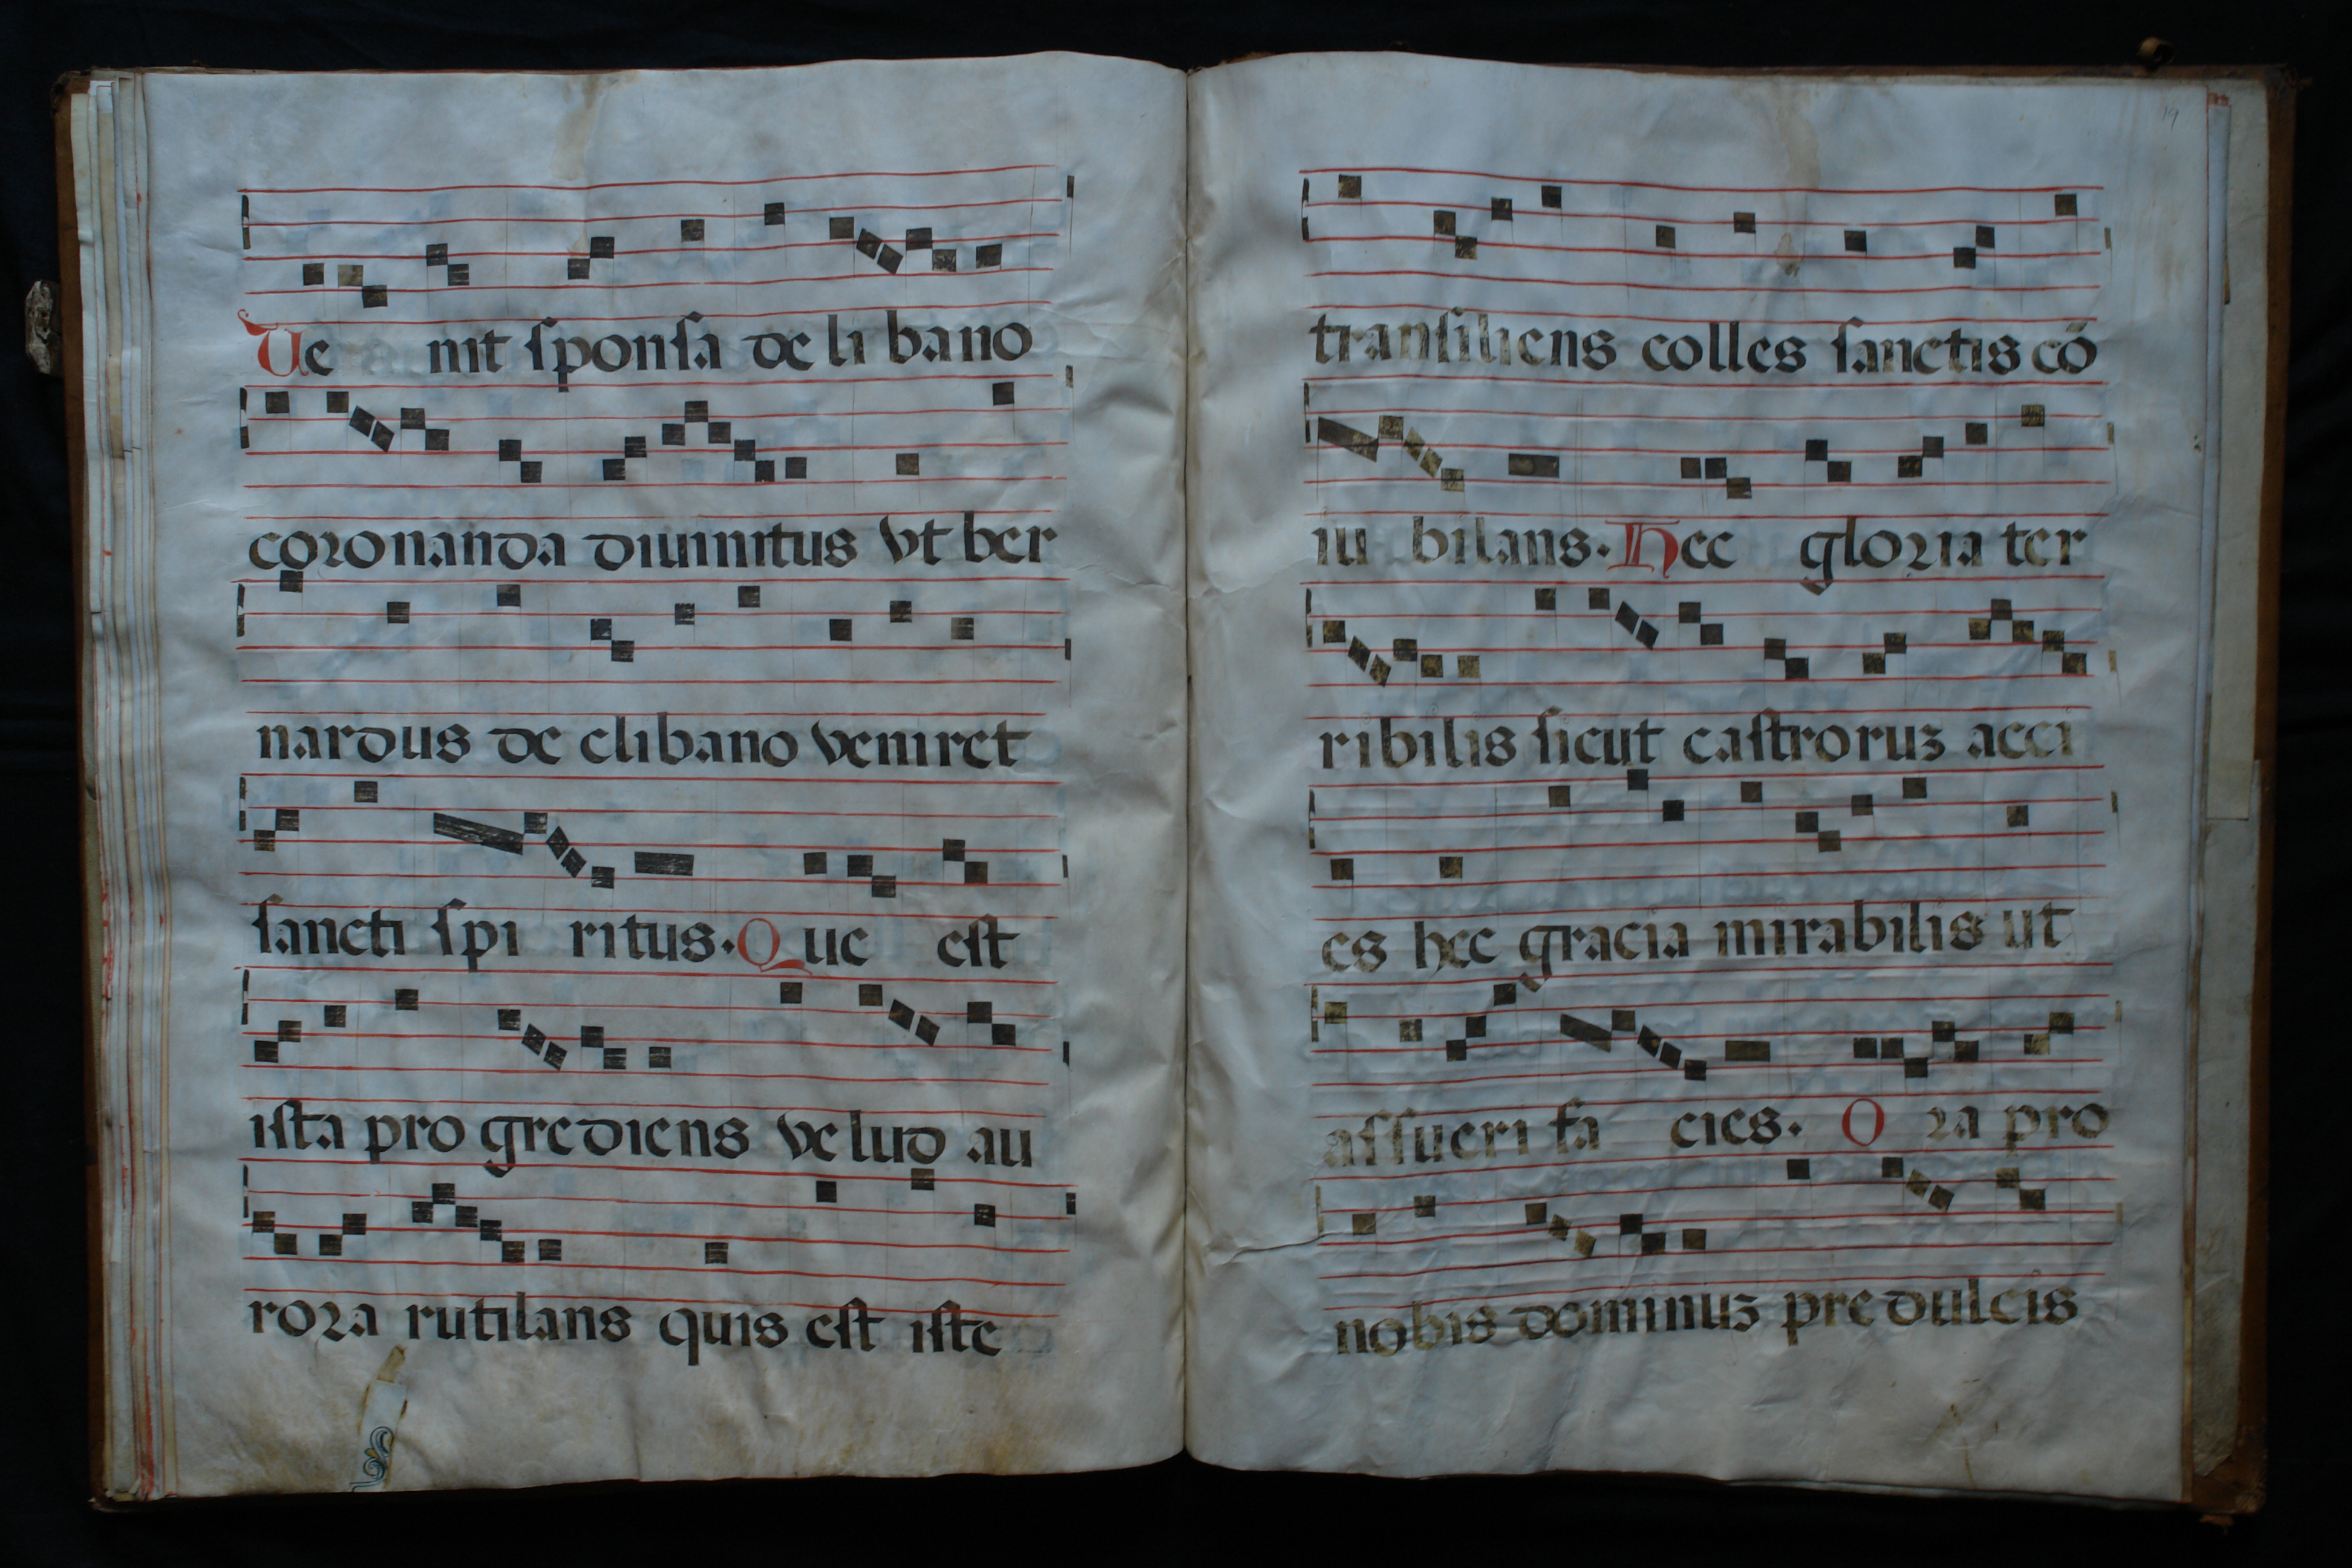 Ue nit sponsa de libano
coronanda diuinitus vt ber
nardus de clibano veniret
sancti spi ritus. Que est
ista pro grediens velud au
rora rutilans quis est iste
19
transiliens colles sanctis cō
iu bilans. Hec gloria ter
ribilis sicut castroruꝫ acci
es hec gracia mirabilis ut
assueri fa cies. O ra pro
nobis dominuꝫ predulcis